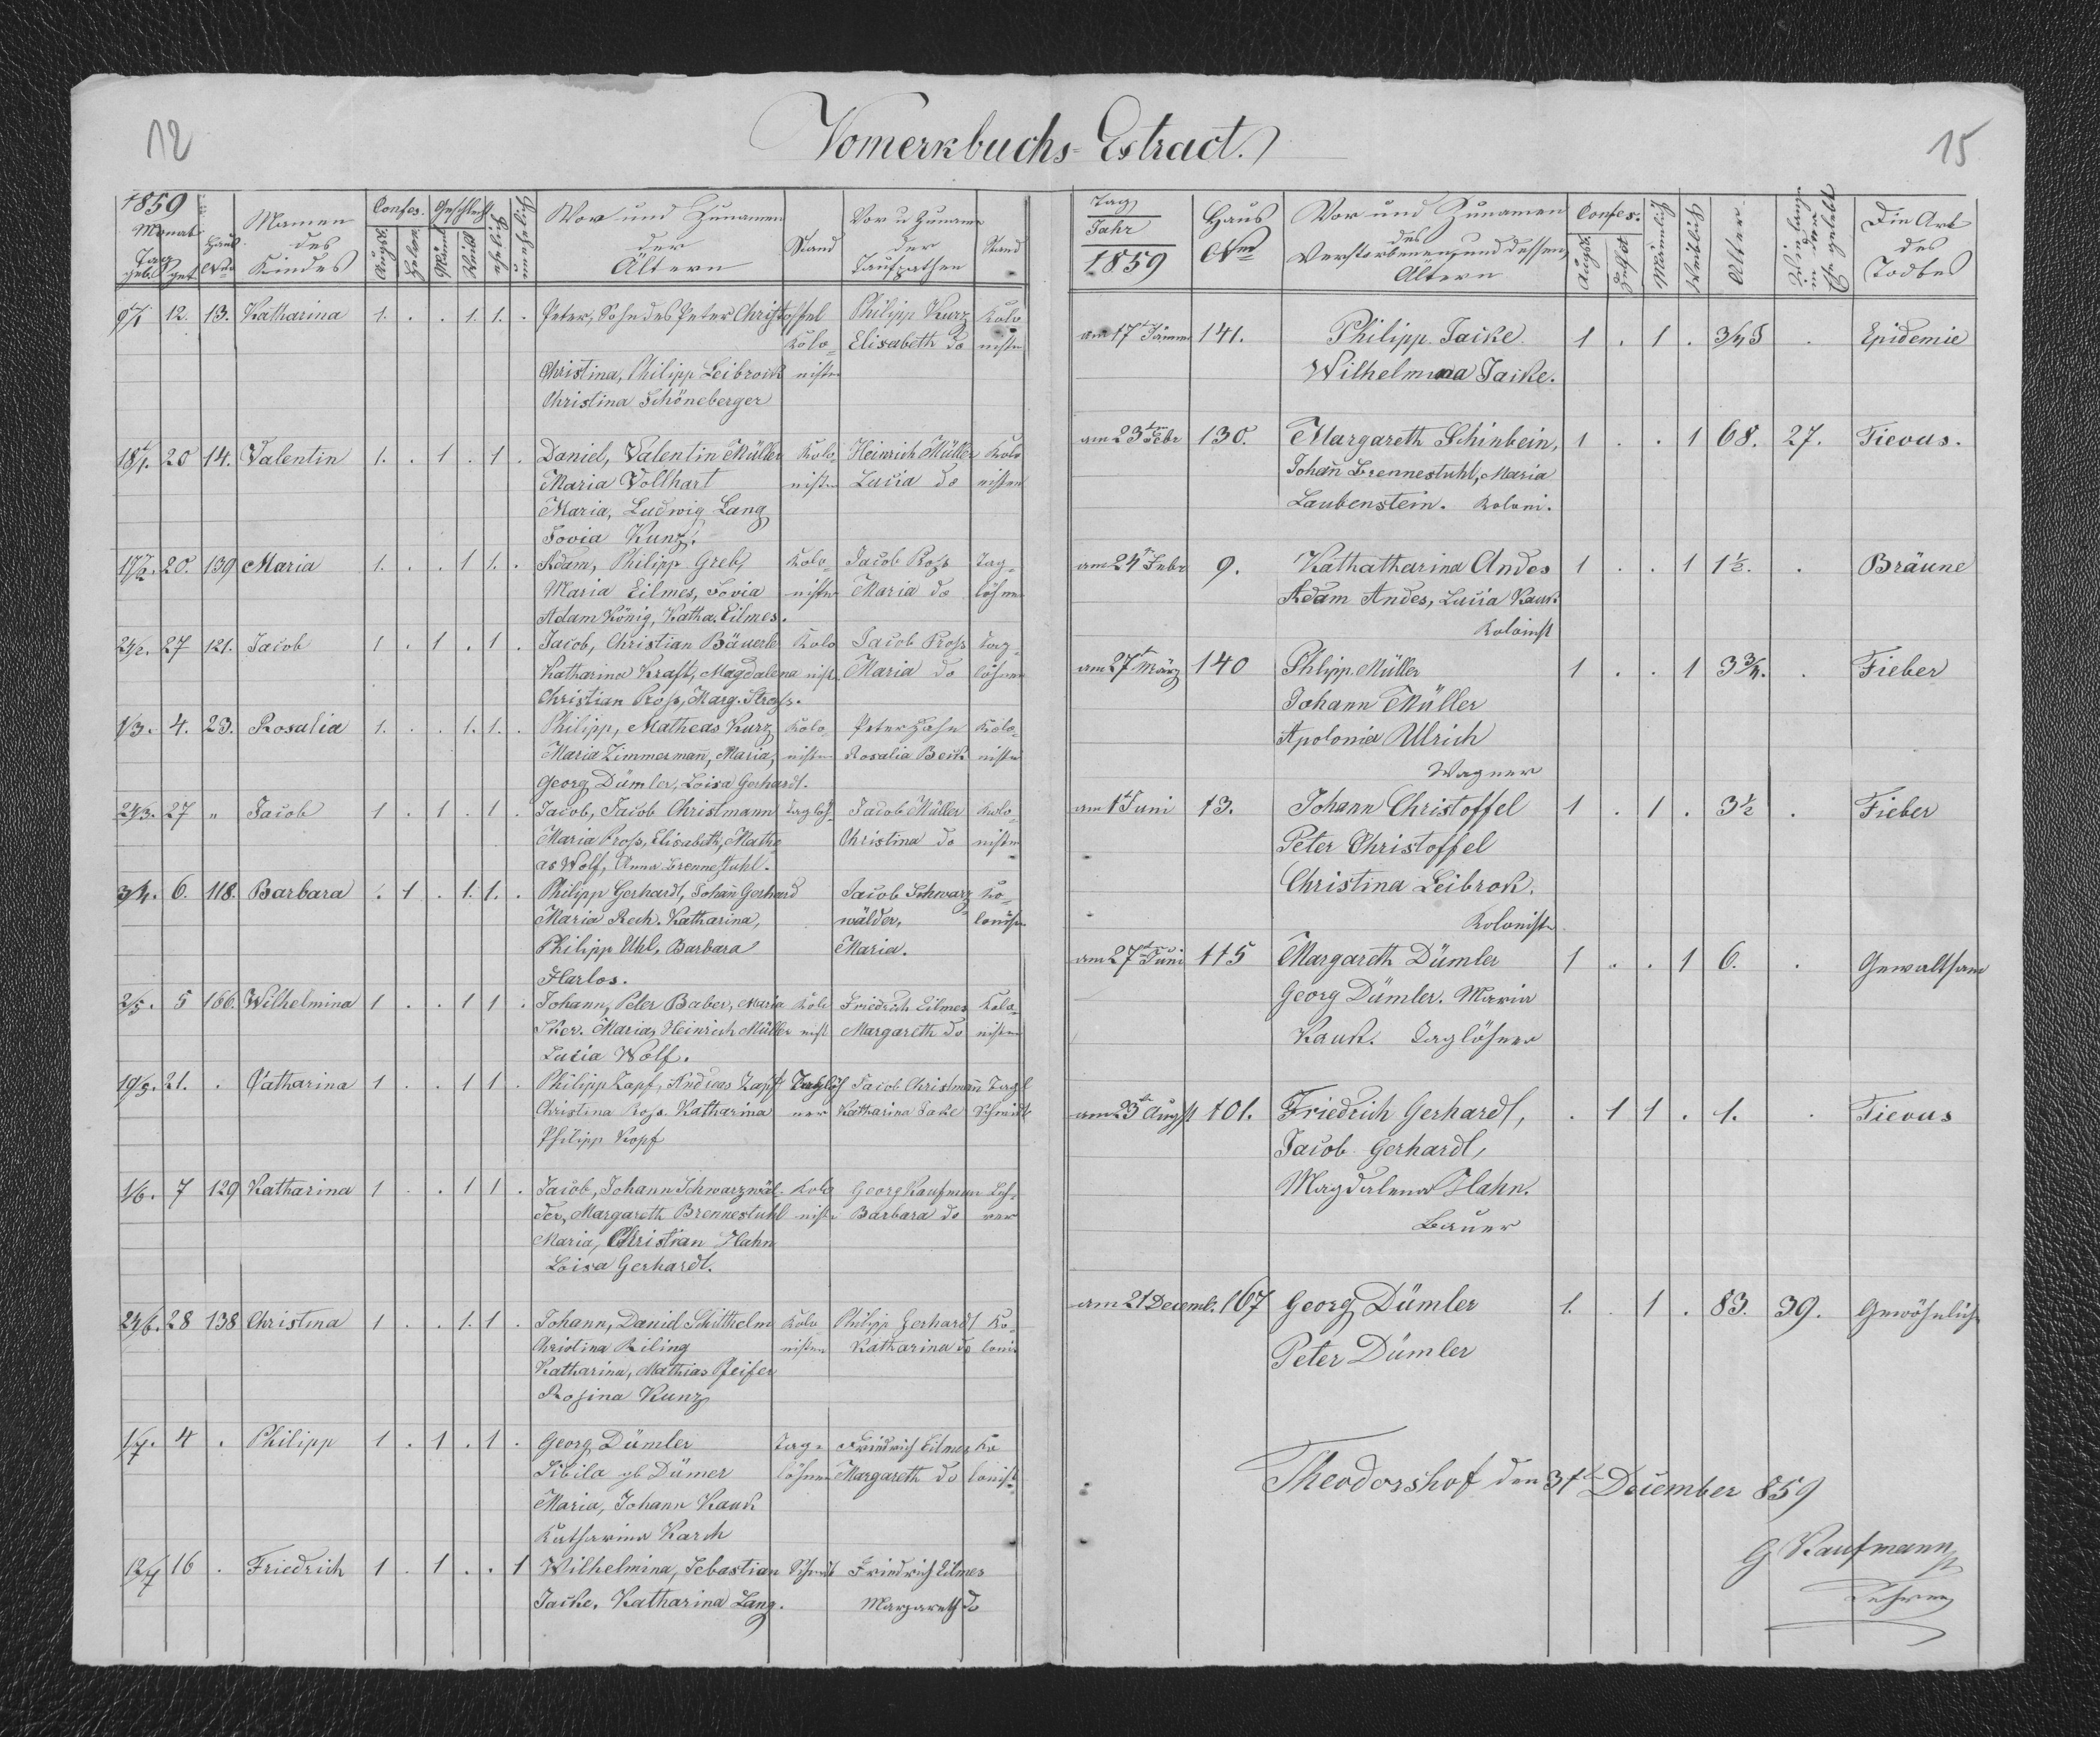 12
15
Vomerkbuchs-Estract.
1859 Monat Tag geb. get. Haus Nro Namen des Kindes Confes. Augsb. Helvt. Geschlecht Männl Weibl ehelich unehelich Vor und Zunamen der Ältern Stand Vor u Zuname der Taufpathen Stand
9/1 12. 13. Katharina 1. . . 1. 1. . Peter, Sohn des Peter Christoffel Philipp Kurz Kolo
Kolo- Elisabeth do nisten
Christina, Philipp Leibrock nisten
Christina Schöneberger
18/1. 20 14. Valentin 1. . 1 . 1 . Daniel, Valentin Müller Kolo- Heinrich Müller Kolo
Maria Vollhart nisten Lucia do nisten
Maria, Ludwig Lang
Sovia Kunz.
17/2. 20. 139 Maria 1. . . 1 1. . Adam, Philipp Greb, Kolo- Jacob Ross Tag-
Maria Eilmes, Sovia nisten Maria do löhner
Adam König, Katha. Eilmes.
24/2. 27 121. Jacob 1 . 1 . 1 . Jacob, Christian Bäuerle Kolo Jacob Pross Tag-
Katharina Kraft, Magdalena nist. Maria do löhner
Christian Pross, Marg.
1/3. 4. 23. Rosalia 1. . . 1. 1. . Philipp, Matheas Kurz Kolo- Peter Hahn Kolo-
Maria Zimmermañ, Maria, nisten Rosalia Beck nisten
Georg Dümler, Loisa Gerhardt.
24/3. 27 " Jacob 1 . 1 . 1 . Jacob, Jacob Christmann Taglöh- Jacob Müller Kolo-
Maria Pross, Elisabeth, Mathe Christina do nisten
as Wolf, Anna Brennestuhl.
3/4. 6. 118. Barbara . 1 . 1. 1. . Philipp Gerhardt, Johañ Gerhard Jacob Schwarz Ko-
Maria Rech. Katharina, wälder, lonisten
Philipp Uhl, Barbara Maria.
Harlos.
2/5. 5 166. Wilhelmina 1 . . 1 1 . Johann, Peter Baber, Maria Kolo Friedrich Eilmes Kolo-
Maria, Heinrich Müller nist Margareth do nisten
Lucia Wolf.
19/5. 21. . Catharina 1 . . 1 1 . Philipp Zapf, Andreas Zapf Taglöh Jacob Christmañ Tagl
Christina Ross. Katharina ner Katharina Jake Schmidt
Philipp Kopf
1/6. 7 129 Katharina 1 . . 1 1 . Jacob, Johann Schwarzwäl- Kolo Georg Kaufman Leh-
der, Margareth Brennestuhl nisten Barbara do rer
Maria, Christian Hahn
Loisa Gerhardt.
24/6. 28 138 Christina 1 . . 1. 1 . Johann, Daniel Schitthelm Kolo Philipp Gerhardt Ko-
Christina Reling nisten Katharina do lonis
Katharina, Mathias Pfeifer
Rosina Kunz
1/7. 4 . Philipp 1 . 1 . 1 . Georg Dümler Tag- Friedrich Eilmes Ko
Sibila gb Dümer löhner Margareth do lonist
Maria, Johann Kauk
Katharina Karch
12/7 16 . Friedrich 1 . 1 . . 1 Wilhelmina, Sebastian Schmidt Friedrich Eilmes
Jacke, Katharina Lang. Margareth do
Tag Jahr 1859 Haus Nro Vor und Zunamen des Verstorbenen, und dessen Ältern Confes. Augsb. Helvet Männlich Weiblich Alter Wie lange in der Ehe gelebt Die Art des Todtes
am 17t Jänner 141. Philipp Jacke 1 . 1 . 3/4 J . Epidemie
Wilhelmina Jacke.
am 23ten Febr 130. Margareth Schinbein, 1 . . 1 68. 27. Tievus.
Johañ Brennestuhl, Maria
Laubenstein. Koloni.
am 24t Febr 9. Kathatharina Andes 1 . . 1 1½. . Bräune
Adam Andes, Lucia Kauk
Kolonist
am 27t März 140 Phlipp Müller 1 . . 1 3¾. . Fieber
Johann Müller
Apolonia Ullrich
Wagner
am 1t Juni 13. Johann Christoffel 1 . 1 . 3½ . Fieber
Peter Christoffel
Christina Leibrok.
Koloniste
am 27t Juni 115 Margareth Dümler 1 . . 1 6. . Gewaltsam
Georg Dümler. Maria
Kauk. Taglöhner
am 23t Augst 101. Friedrich Gerhardt, . 1 1 . 1. . Tievus
Jacob Gerhardt,
Magdalena Hahn.
Bauer
am 21 Decemb. 167 Georg Dümler 1. . 1 . 83. 39. Gewöhnlich
Peter Dümler
Theodorshof den 31t December 859
G Kaufmann
Lehrer